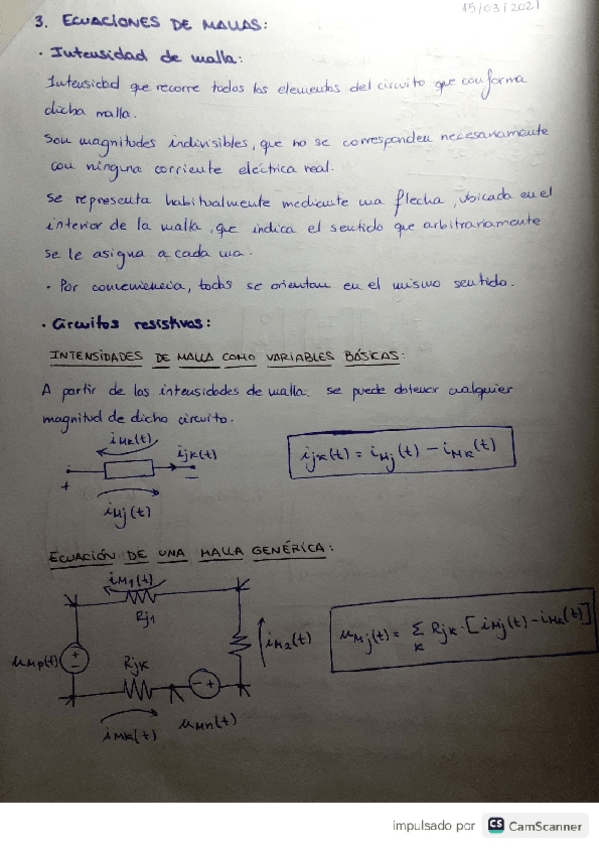 15/03/2021
3. ECUACIONES DE MALLAS:
· Intensidad de malla:
Intensidad que recorre todos los elementos del circuito que conforma
dicha malla.
Son magnitudes indivisibles, que no se corresponden necesariamente
con ninguna corriente eléctrica real.
Se representa habitualmente mediante una flecha, ubicada en el
interior de la malla, que indica el sentido que arbitrariamente
se le asigna a cada una.
- Por conveniencia, todas se orientan en el mismo sentido.
· Circuitos resistivos:
INTENSIDADES DE MALLA COMO VARIABLES BÁSICAS:
A partir de las intensidades de malla se puede obtener cualquier
magnitud de dicho circuito.
iMk(t)
ijk(t)
+ −
iMj(t)
ijk(t) = iMj(t) − iMk(t)
ECUACIÓN DE UNA MALLA GENÉRICA:
iM1(t)
Rj1
iM2(t)
uMp(t)
+ −
Rjk
− +
iMk(t)
uMn(t)
uMj(t) = Σk Rjk · [iMj(t) − iMk(t)]
impulsado por CS CamScanner